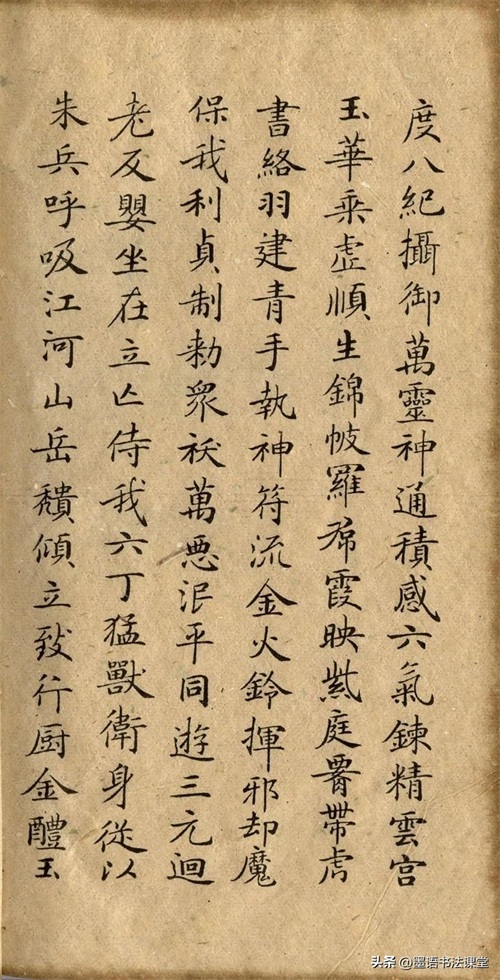 度八紀攝御萬靈神通積感六氣鍊精雲宮
玉華乘虛順生錦帔羅帬霞映紫庭腰帶虎
書絡羽建青手執神符流金火鈴揮邪却魔
保我利貞制勑眾祅萬惡泯平同遊三元迴
老反嬰坐在立亡侍我六丁猛獸衛身從以
朱兵呼吸江河山岳穨傾立致行厨金醴玉
头条 @墨语书法课堂